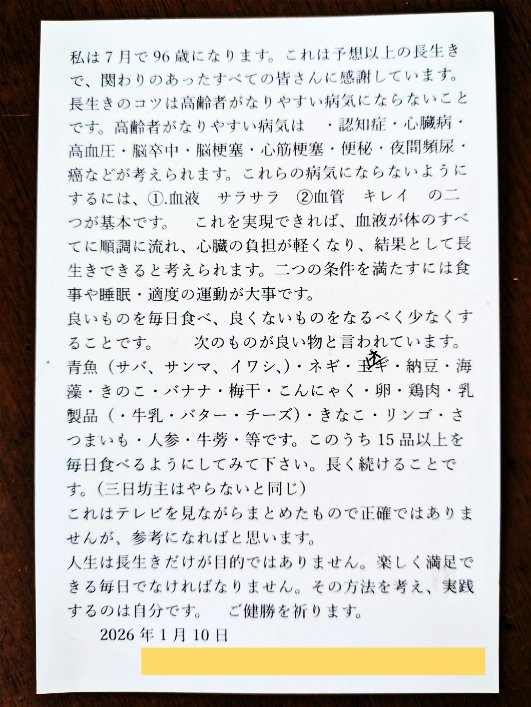 私は7月で96歳になります。これは予想以上の長生き
で、関わりのあったすべての皆さんに感謝しています。
長生きのコツは高齢者がなりやすい病気にならないこと
です。高齢者がなりやすい病気は　・認知症・心臓病・
高血圧・脳卒中・脳梗塞・心筋梗塞・便秘・夜間頻尿・
癌などが考えられます。これらの病気にならないように
するには、①.血液　サラサラ　②血管　キレイ　の二
つが基本です。　これを実現できれば、血液が体のすべ
てに順調に流れ、心臓の負担が軽くなり、結果として長
生きできると考えられます。二つの条件を満たすには食
事や睡眠・適度の運動が大事です。
良いものを毎日食べ、良くないものをなるべく少なくす
ることです。　　次のものが良い物と言われています。
青魚（サバ、サンマ、イワシ、）・ネギ・玉ネギ・納豆・海
藻・きのこ・バナナ・梅干・こんにゃく・卵・鶏肉・乳
製品（・牛乳・バター・チーズ）・きなこ・リンゴ・さ
つまいも・人参・牛蒡・等です。このうち15品以上を
毎日食べるようにしてみて下さい。長く続けることで
す。(三日坊主はやらないと同じ）
これはテレビを見ながらまとめたもので正確ではありま
せんが、参考になればと思います。
人生は長生きだけが目的ではありません。楽しく満足で
きる毎日でなければなりません。その方法を考え、実践
するのは自分です。　ご健勝を祈ります。
2026年1月10日